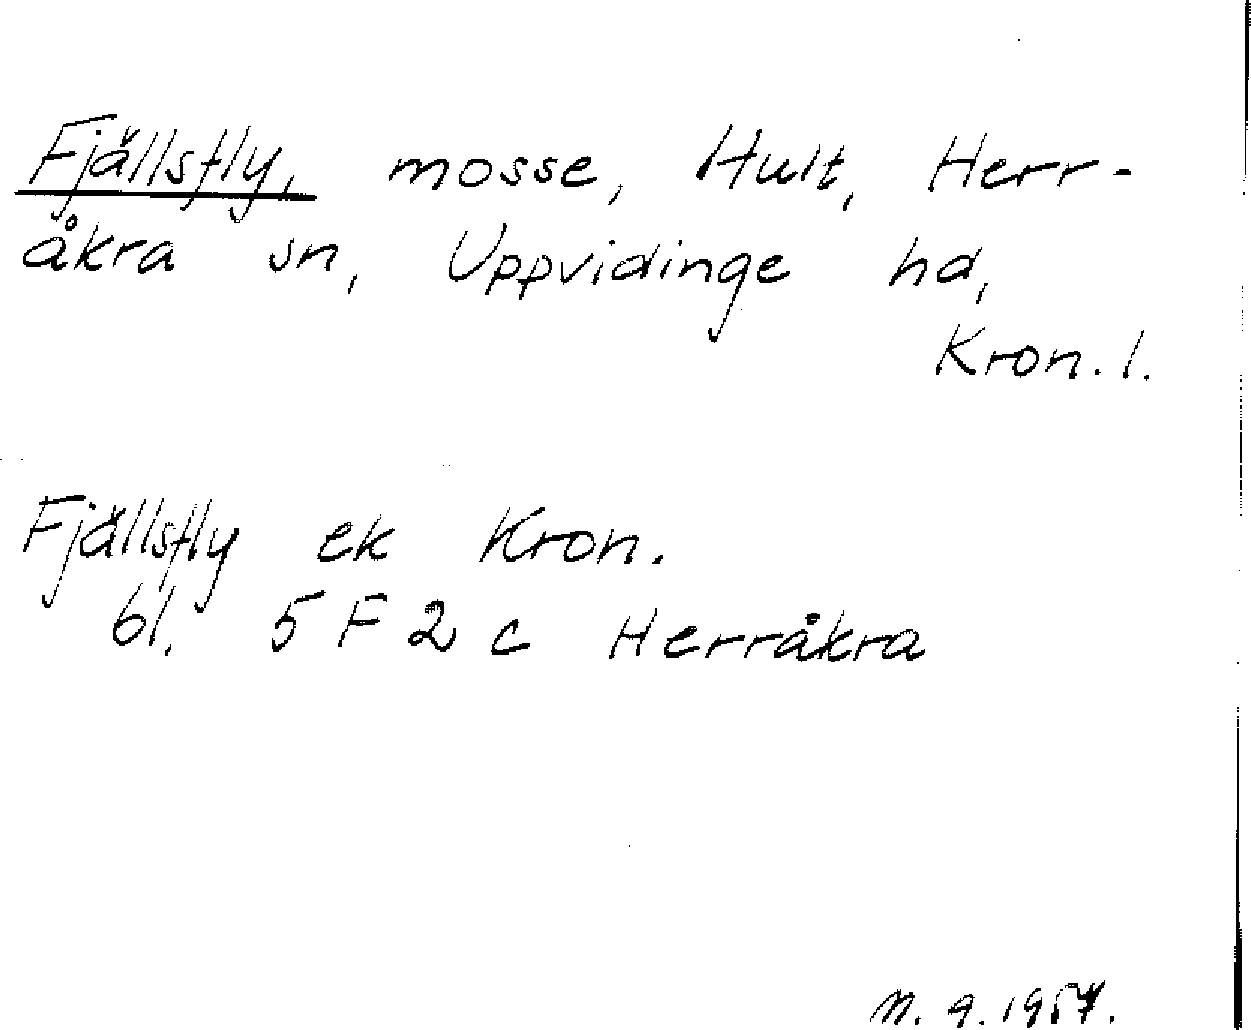 Fjällsfly, mosse, Hult, Herr-
åkra sn, Uppvidinge hd,
Kron. l.
Fjällsfly ek Kron.
bl. 5 F 2 c Herråkra
n. 9. 1957.